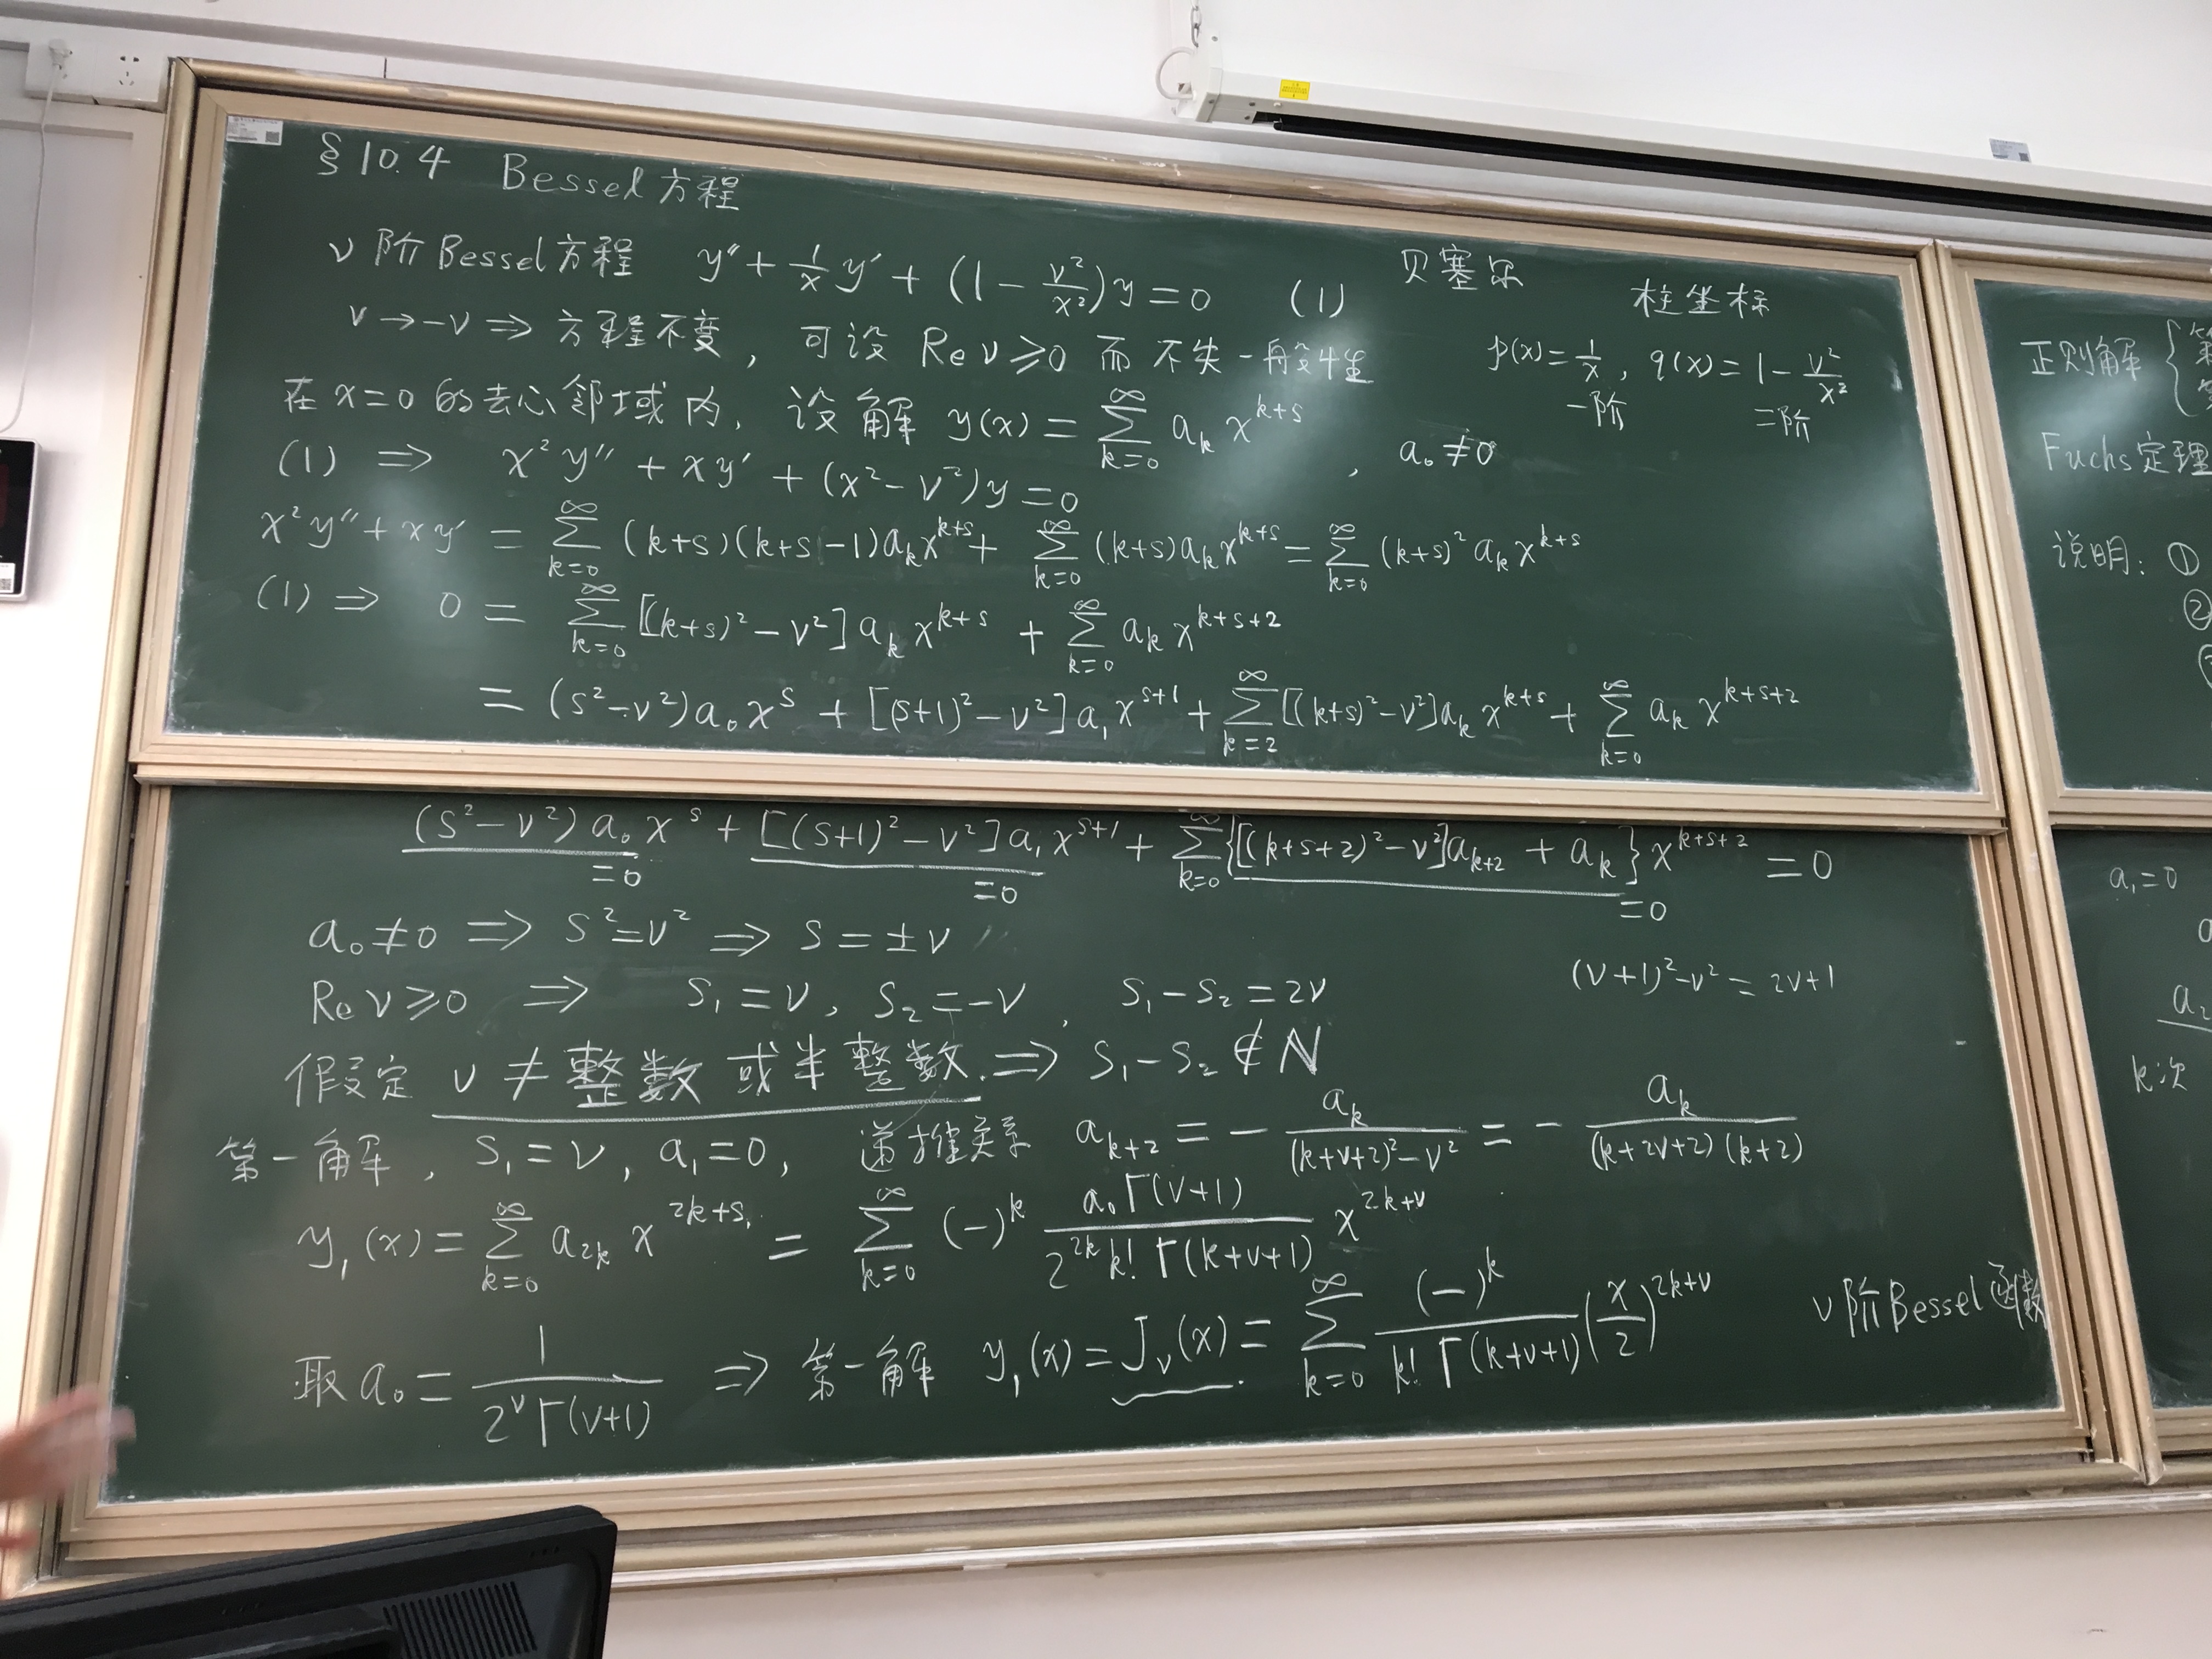 §10.4 Bessel方程
ν阶Bessel方程 y″ + 1/x y′ + (1 - ν²/x²)y = 0 (1) 贝塞尔 柱坐标
ν→-ν ⇒ 方程不变, 可设 Re ν ⩾ 0 而不失一般性 p(x) = 1/x, q(x) = 1 - ν²/x²
一阶 二阶
在 x=0 的去心邻域内, 设解 y(x) = ∑_{k=0}^{∞} a_k x^{k+s}, a₀ ≠ 0
(1) ⇒ x²y″ + xy′ + (x² - ν²)y = 0
x²y″ + xy′ = ∑_{k=0}^{∞} (k+s)(k+s-1)a_k x^{k+s} + ∑_{k=0}^{∞} (k+s)a_k x^{k+s} = ∑_{k=0}^{∞} (k+s)² a_k x^{k+s}
(1) ⇒ 0 = ∑_{k=0}^{∞} [(k+s)² - ν²] a_k x^{k+s} + ∑_{k=0}^{∞} a_k x^{k+s+2}
= (s²-ν²)a₀x^s + [(s+1)² - ν²]a₁x^{s+1} + ∑_{k=2}^{∞} [(k+s)²-ν²]a_k x^{k+s} + ∑_{k=0}^{∞} a_k x^{k+s+2}
(s²-ν²)a₀x^s + [(s+1)²-ν²]a₁x^{s+1} + ∑_{k=0}^{∞} {[(k+s+2)²-ν²]a_{k+2} + a_k} x^{k+s+2} = 0
=0 =0 =0
a₀≠0 ⇒ s²=ν² ⇒ s=±ν
Re ν ⩾ 0 ⇒ s₁=ν, s₂=-ν, s₁-s₂=2ν (ν+1)²-ν² = 2ν+1
假定 ν ≠ 整数或半整数. ⇒ s₁-s₂ ∉ N
第一解, s₁=ν, a₁=0, 递推关系 a_{k+2} = - a_k/((k+ν+2)²-ν²) = - a_k/((k+2ν+2)(k+2))
y₁(x) = ∑_{k=0}^{∞} a_{2k} x^{2k+s₁} = ∑_{k=0}^{∞} (-)^k a₀Γ(ν+1)/(2^{2k} k! Γ(k+ν+1)) x^{2k+ν}
取 a₀ = 1/(2^ν Γ(ν+1)) ⇒ 第一解 y₁(x) = J_ν(x) = ∑_{k=0}^{∞} (-)^k/(k! Γ(k+ν+1)) (x/2)^{2k+ν} ν阶Bessel函数
正则解 {
Fuchs定理
说明: ①
②
a₁=0
a₂
k次